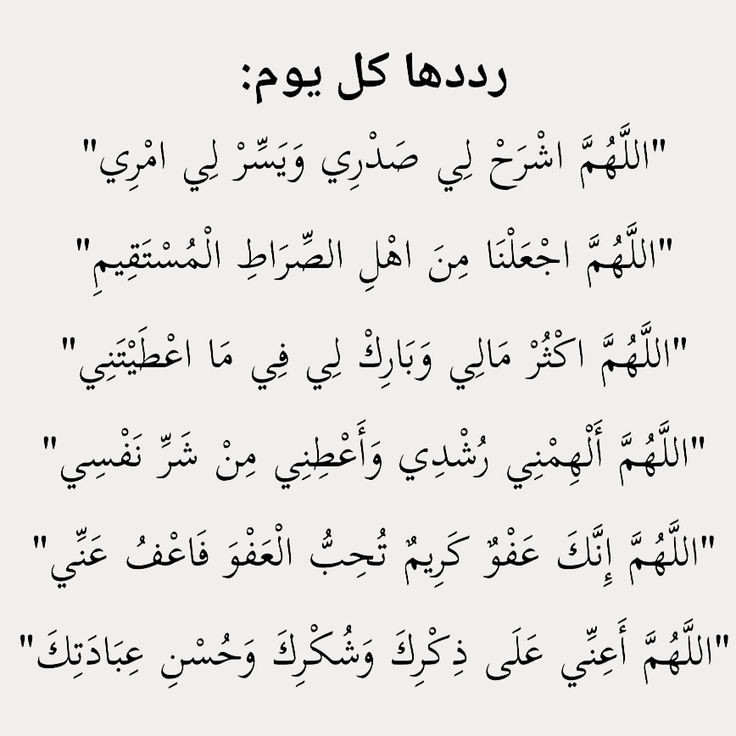 رددها كل يوم:
"اللَّهُمَّ اشْرَحْ لِي صَدْرِي وَيَسِّرْ لِي امْرِي"
"اللَّهُمَّ اجْعَلْنَا مِنَ اهْلِ الصِّرَاطِ الْمُسْتَقِيمِ"
"اللَّهُمَّ اكْثُرْ مَالِي وَبَارِكْ لِي فِي مَا اعْطَيْتَنِي"
"اللَّهُمَّ أَلْهِمْنِي رُشْدِي وَأَعْطِنِي مِنْ شَرِّ نَفْسِي"
"اللَّهُمَّ إِنَّكَ عَفْوٌ كَرِيمٌ تُحِبُّ الْعَفْوَ فَاعْفُ عَنِّي"
"اللَّهُمَّ أَعِنِّي عَلَى ذِكْرِكَ وَشُكْرِكَ وَحُسْنِ عِبَادَتِكَ"